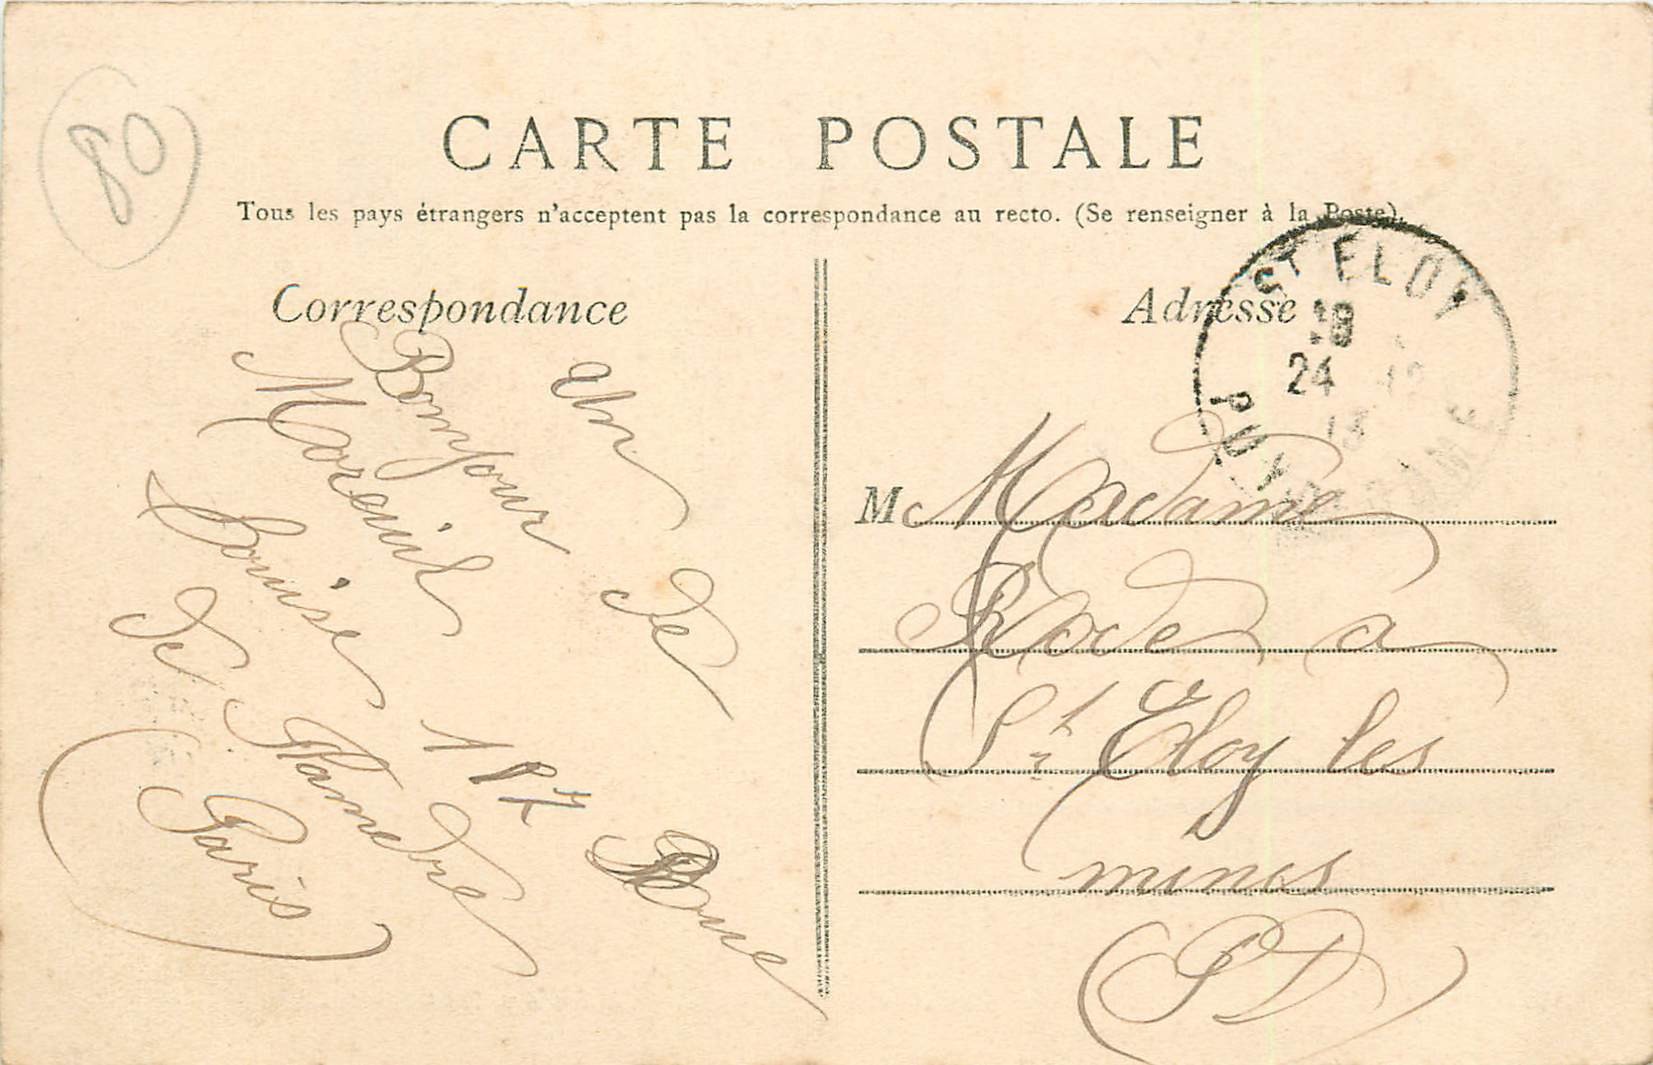 80
CARTE POSTALE
Tous les pays étrangers n'acceptent pas la correspondance au recto. (Se renseigner à la Poste).
Correspondance
Un
Bonjour de
Moreuil
Louise
17 Rue
de
Paris
Adresse
ST ELOY
18
24
PUY DE DOME
M Madame
Rode à
St Eloy les
mines
P D